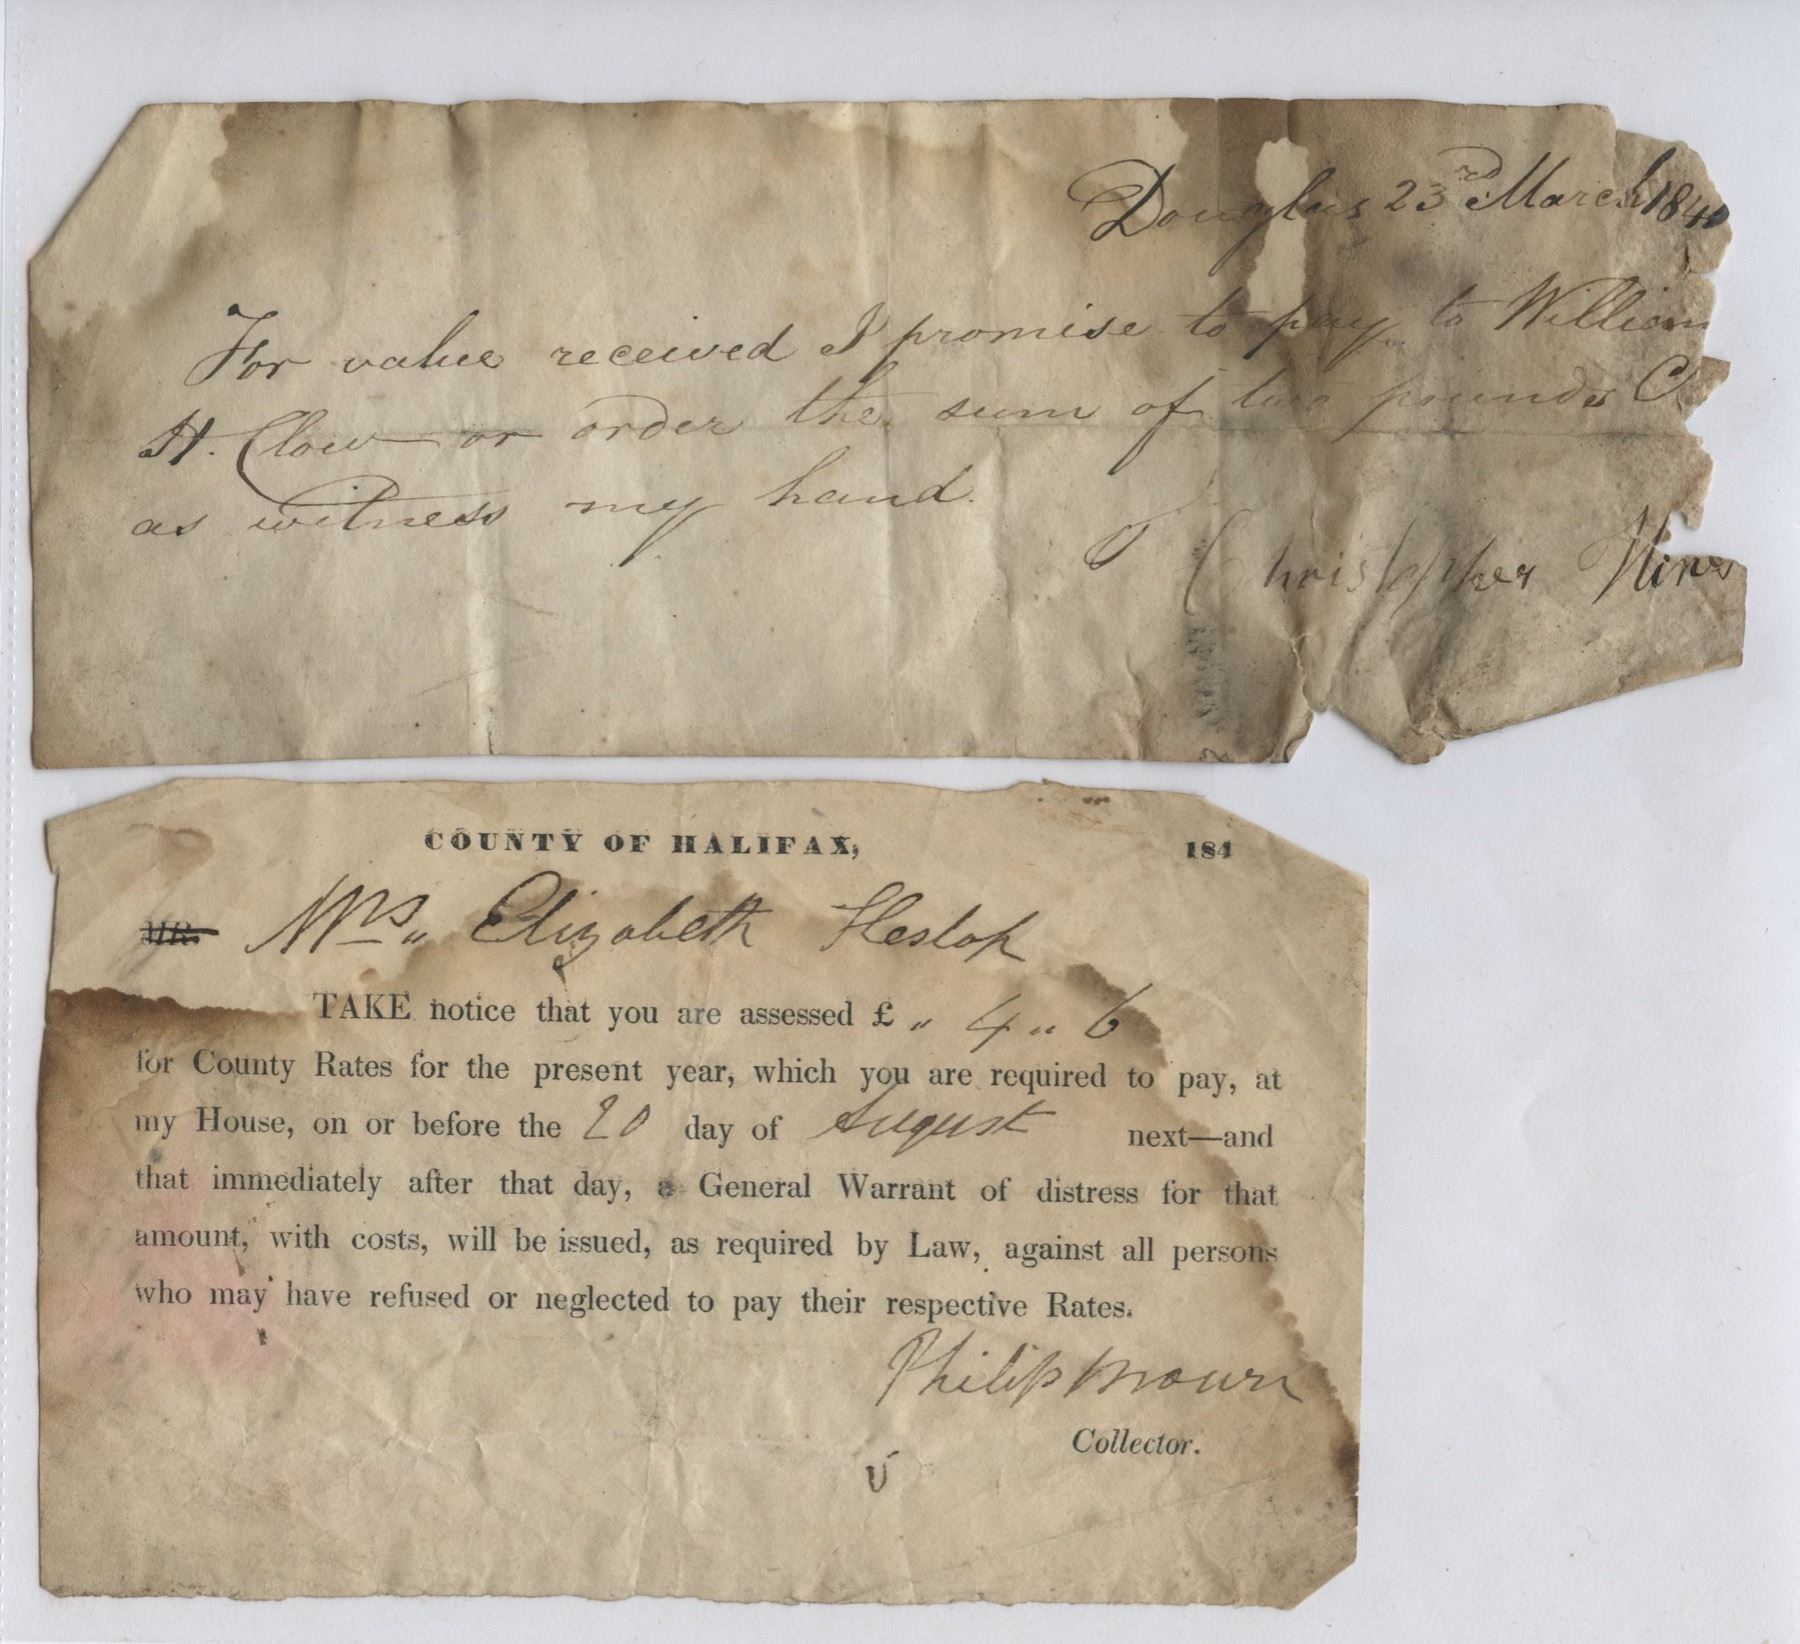 Douglas 23rd March 1840
For value received I promise to pay to William
H. Clow or order the sum of two pounds C
as witness my hand.
Christopher
COUNTY OF HALIFAX, 184
MR. Mrs„ Elizabeth Heslop
TAKE notice that you are assessed £ „ 4 „ 6
for County Rates for the present year, which you are required to pay, at
my House, on or before the 20 day of August next—and
that immediately after that day, a General Warrant of distress for that
amount, with costs, will be issued, as required by Law, against all persons
who may have refused or neglected to pay their respective Rates.
Philip Brown
Collector.